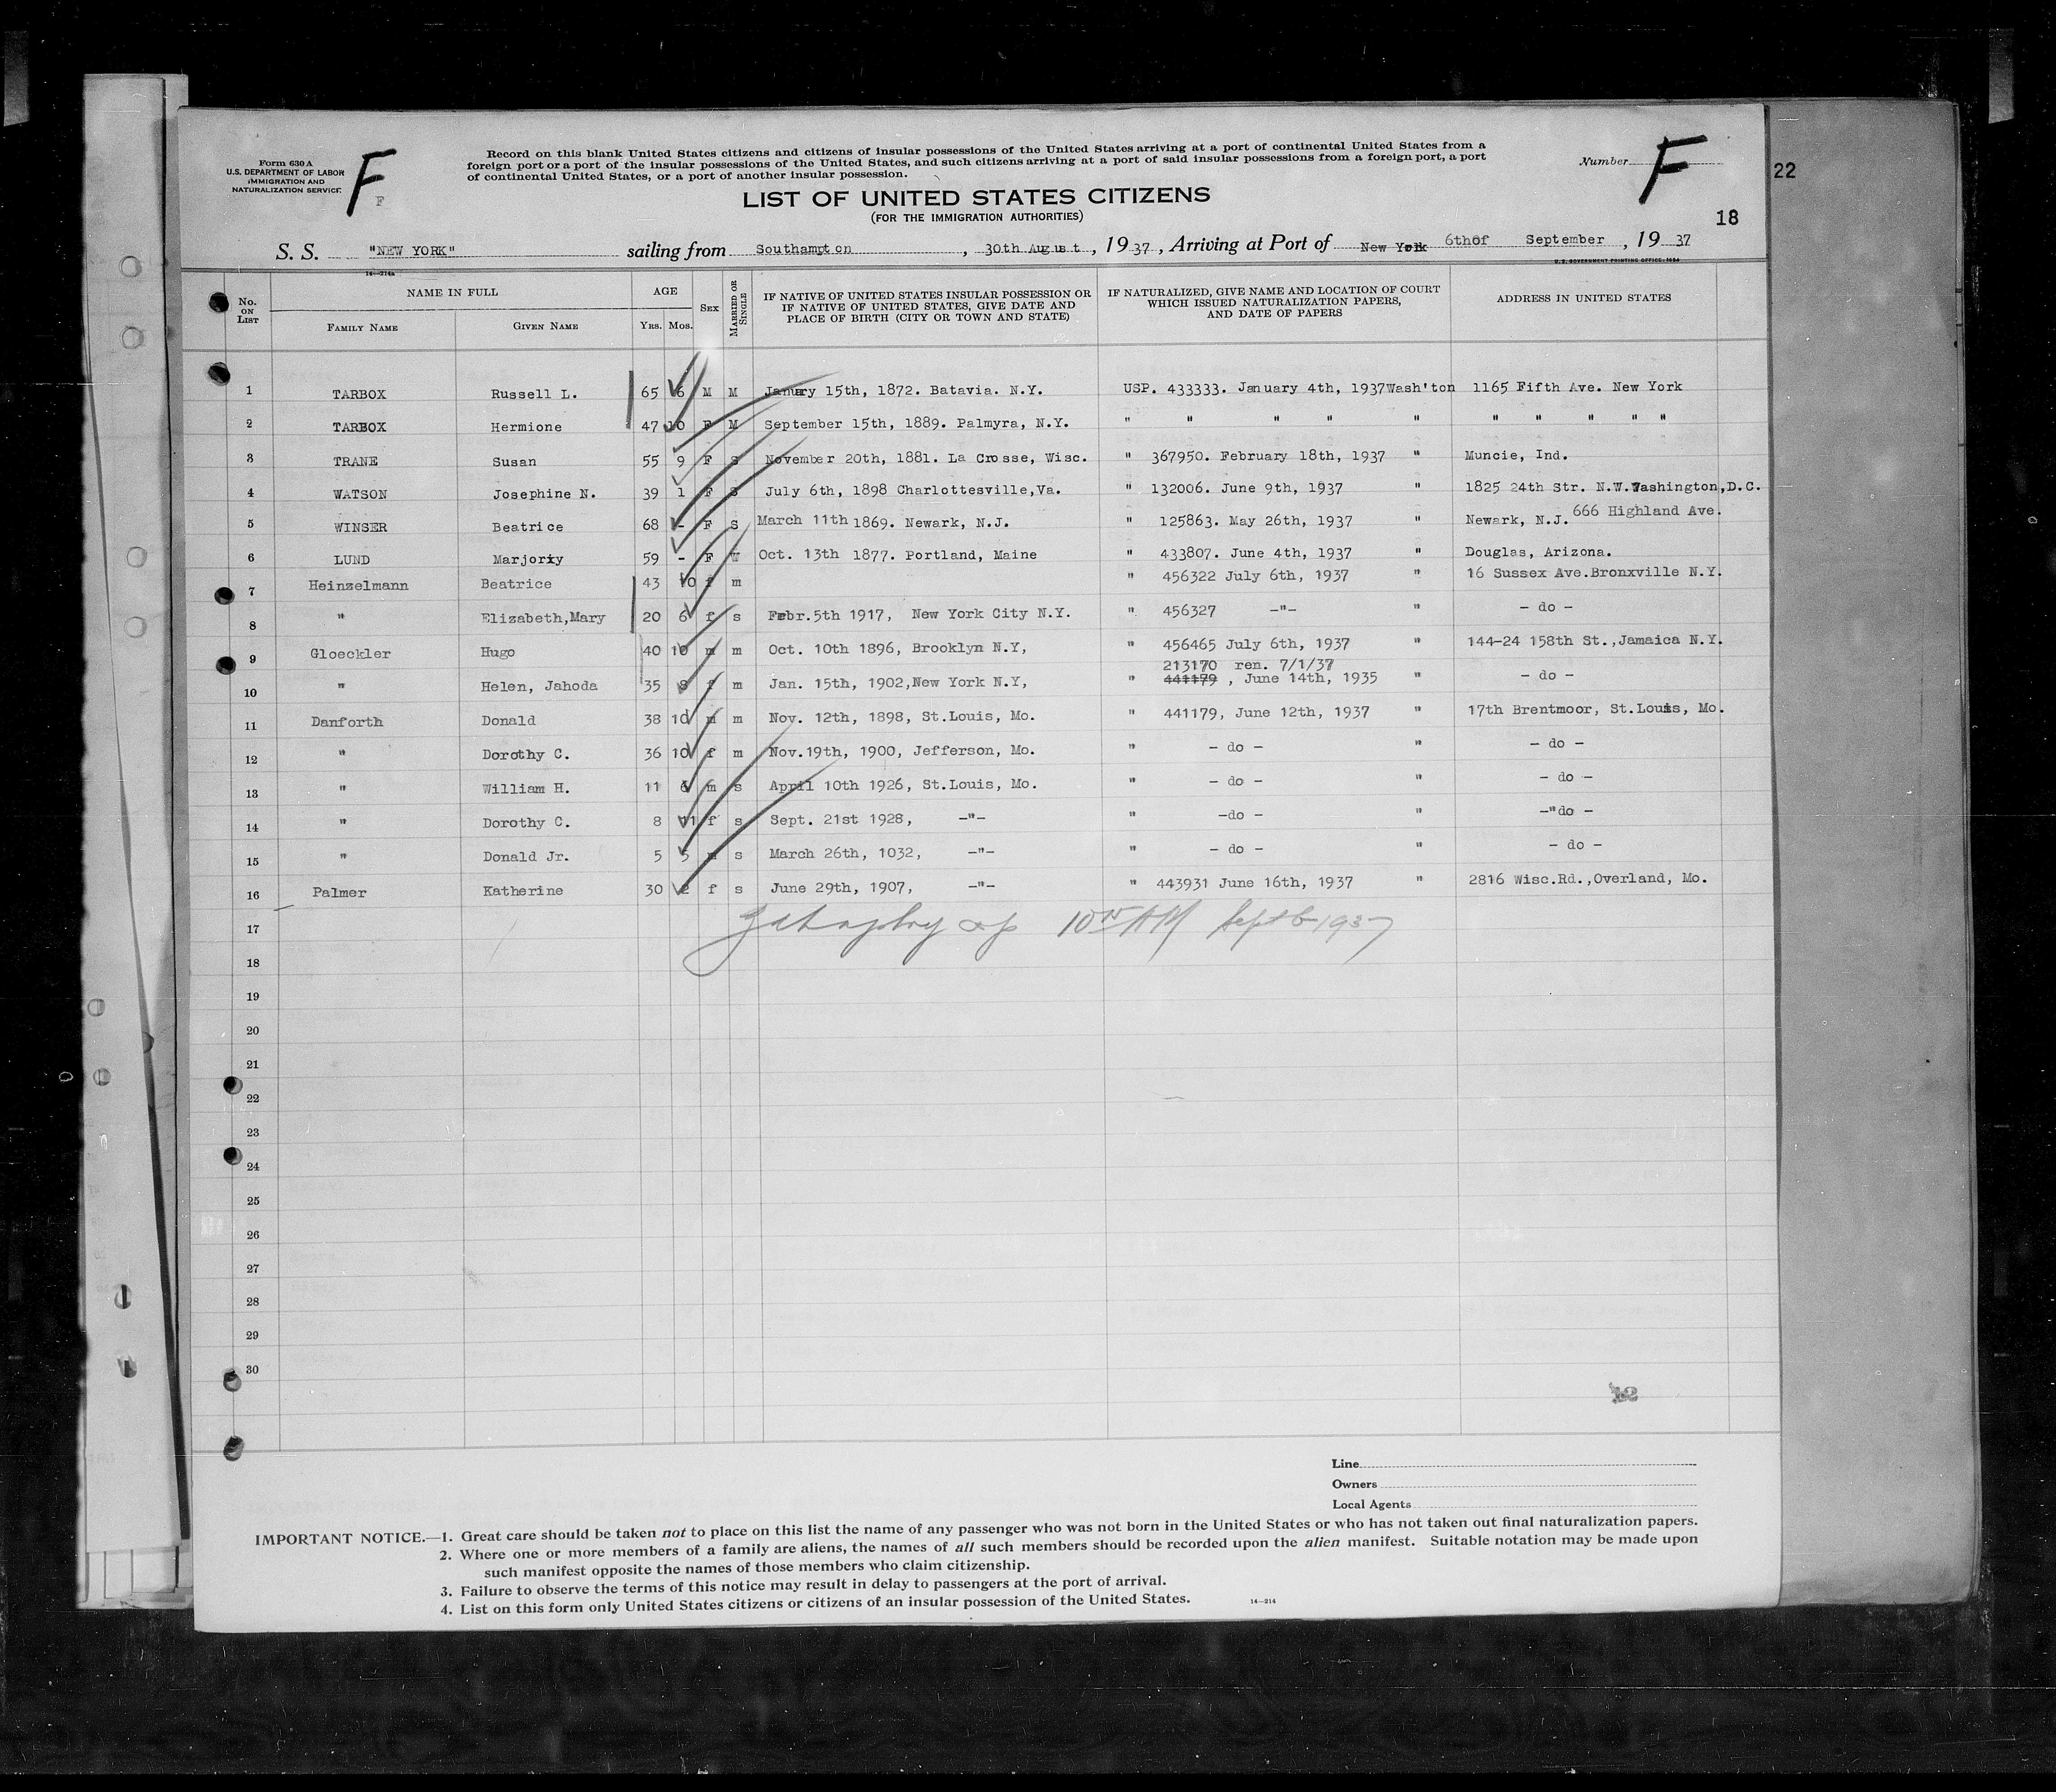 Form 630 A
U.S. DEPARTMENT OF LABOR
IMMIGRATION AND
NATURALIZATION SERVICE
F
F
Record on this blank United States citizens and citizens of insular possessions of the United States arriving at a port of continental United States from a
foreign port or a port of the insular possessions of the United States, and such citizens arriving at a port of said insular possessions from a foreign port, a port
of continental United States, or a port of another insular possession.
Number F
22
LIST OF UNITED STATES CITIZENS
(FOR THE IMMIGRATION AUTHORITIES)
18
S. S. "NEW YORK" sailing from Southampton, 30th August, 1937, Arriving at Port of New York 6thof September, 19 37
14—214a
U.S. GOVERNMENT PRINTING OFFICE: 1934
No. ON LIST NAME IN FULL FAMILY NAME GIVEN NAME AGE YRS. MOS. SEX MARRIED OR SINGLE IF NATIVE OF UNITED STATES INSULAR POSSESSION OR IF NATIVE OF UNITED STATES, GIVE DATE AND PLACE OF BIRTH (CITY OR TOWN AND STATE) IF NATURALIZED, GIVE NAME AND LOCATION OF COURT WHICH ISSUED NATURALIZATION PAPERS, AND DATE OF PAPERS ADDRESS IN UNITED STATES
1 TARBOX Russell L. 65 6 M M January 15th, 1872. Batavia. N.Y. USP. 433333. January 4th, 1937Wash'ton 1165 Fifth Ave. New York
2 TARBOX Hermione 47 10 F M September 15th, 1889. Palmyra, N.Y. " " " " " " " " " "
3 TRANE Susan 55 9 F S November 20th, 1881. La Crosse, Wisc. " 367950. February 18th, 1937 " Muncie, Ind.
4 WATSON Josephine N. 39 1 F S July 6th, 1898 Charlottesville,Va. " 132006. June 9th, 1937 " 1825 24th Str. N.W.Washington,D.C.
5 WINSER Beatrice 68 - F S March 11th 1869. Newark, N.J. " 125863. May 26th, 1937 " Newark, N.J. 666 Highland Ave.
6 LUND Marjoriy 59 - F W Oct. 13th 1877. Portland, Maine " 433807. June 4th, 1937 " Douglas, Arizona.
7 Heinzelmann Beatrice 43 10 f m " 456322 July 6th, 1937 " 16 Sussex Ave.Bronxville N.Y.
8 " Elizabeth,Mary 20 6 f s Febr.5th 1917, New York City N.Y. " 456327 -"- " - do -
9 Gloeckler Hugo 40 10 m m Oct. 10th 1896, Brooklyn N.Y, " 456465 July 6th, 1937 " 144-24 158th St.,Jamaica N.Y.
213170 ren. 7/1/37
10 " Helen, Jahoda 35 8 f m Jan. 15th, 1902,New York N.Y, " 441179 , June 14th, 1935 " - do -
11 Danforth Donald 38 10 m m Nov. 12th, 1898, St.Louis, Mo. " 441179, June 12th, 1937 " 17th Brentmoor, St.Louis, Mo.
12 " Dorothy C. 36 10 f m Nov.19th, 1900, Jefferson, Mo. " - do - " - do -
13 " William H. 11 6 m s April 10th 1926, St.Louis, Mo. " - do - " - do -
14 " Dorothy C. 8 11 f s Sept. 21st 1928, -"- " -do - " -"do -
15 " Donald Jr. 5 5 m s March 26th, 1032, -"- " - do - " - do -
16 Palmer Katherine 30 2 f s June 29th, 1907, -"- " 443931 June 16th, 1937 " 2816 Wisc.Rd.,Overland, Mo.
17 AM Sept 6 1937
18
19
20
21
22
23
24
25
26
27
28
29
30
12
Line
Owners
Local Agents
IMPORTANT NOTICE.—1. Great care should be taken not to place on this list the name of any passenger who was not born in the United States or who has not taken out final naturalization papers.
2. Where one or more members of a family are aliens, the names of all such members should be recorded upon the alien manifest. Suitable notation may be made upon
such manifest opposite the names of those members who claim citizenship.
3. Failure to observe the terms of this notice may result in delay to passengers at the port of arrival.
4. List on this form only United States citizens or citizens of an insular possession of the United States.
14—214